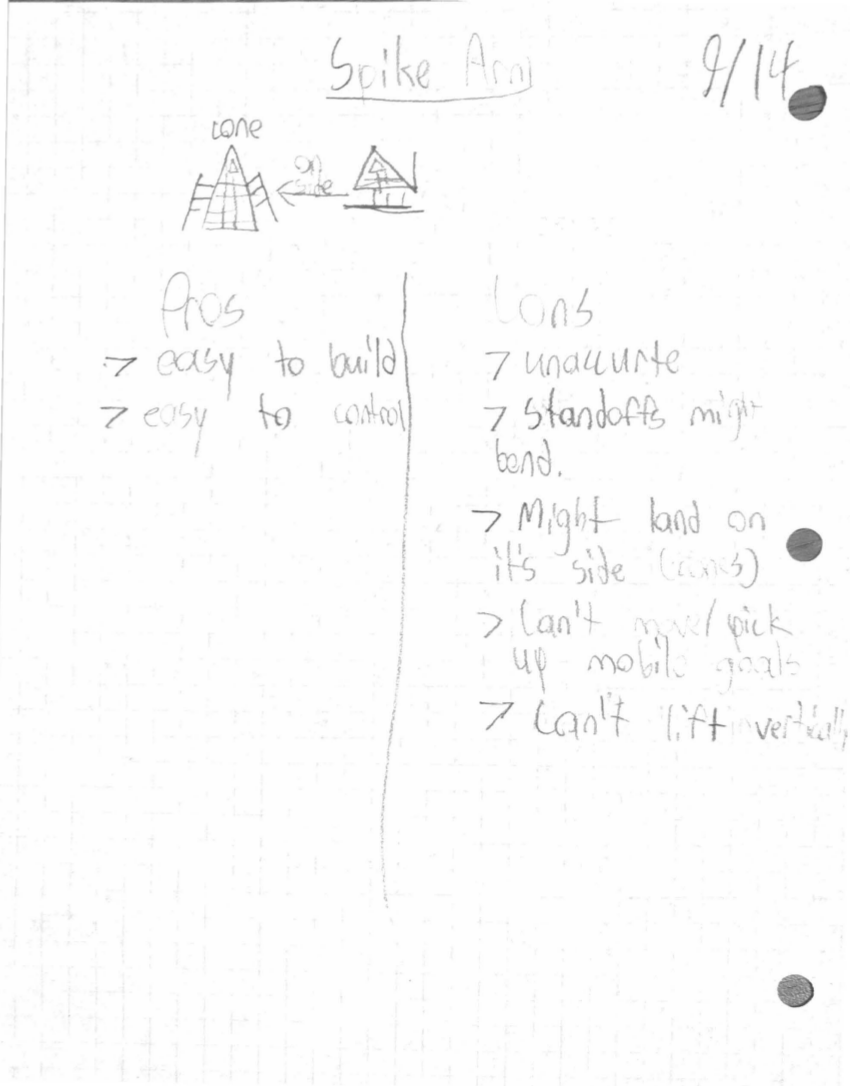 Spike Arm
9/14
cone
on
side
Pros
Cons
> easy to build
> easy to control
> unaccurte
> Standoffs might
bend.
> Might land on
it's side (cones)
> Can't move/pick
up mobile goals
> Can't lift vertically